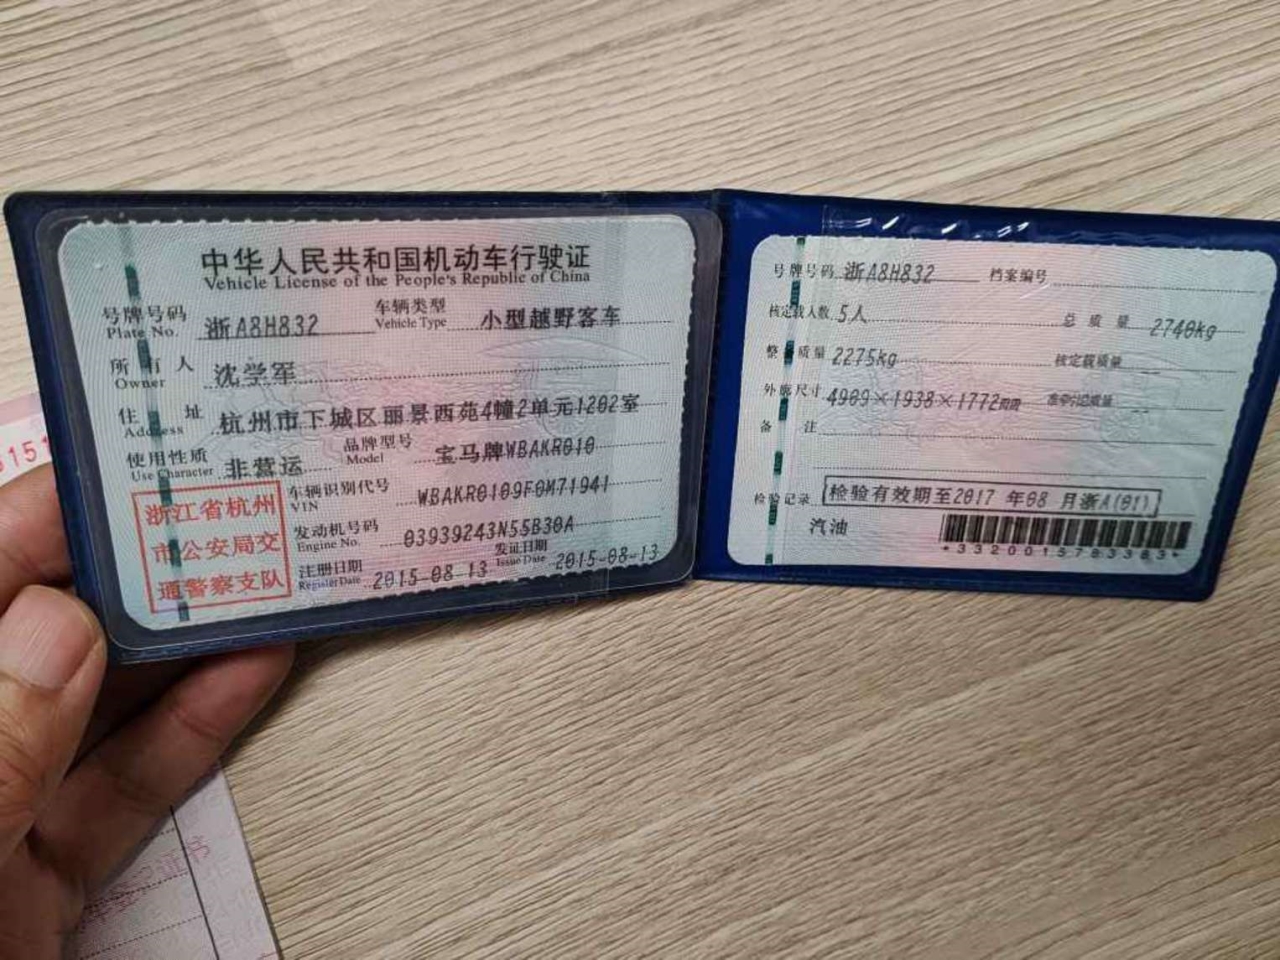 中华人民共和国机动车行驶证
Vehicle License of the People's Republic of China
号牌号码 浙A8H832 车辆类型 小型越野客车
Plate No. Vehicle Type
所有人 沈学军
Owner
住址 杭州市下城区丽景西苑4幢2单元1202室
Address
使用性质 非营运 品牌型号 宝马牌WBAKR010
Use Character Model
浙江省杭州
市公安局交
通警察支队
车辆识别代号 WBAKR0109F0M71941
VIN
发动机号码 03939243N55B30A
Engine No.
注册日期 2015-08-13 发证日期 2015-08-13
Register Date Issue Date
号牌号码 浙A8H832 档案编号
核定载人数 5人 总质量 2740kg
整备质量 2275kg 核定载质量
外廓尺寸 4909×1938×1772mm 准牵引总质量
备注
检验记录 检验有效期至2017年08月浙A(01)
汽油
*3320015783383*